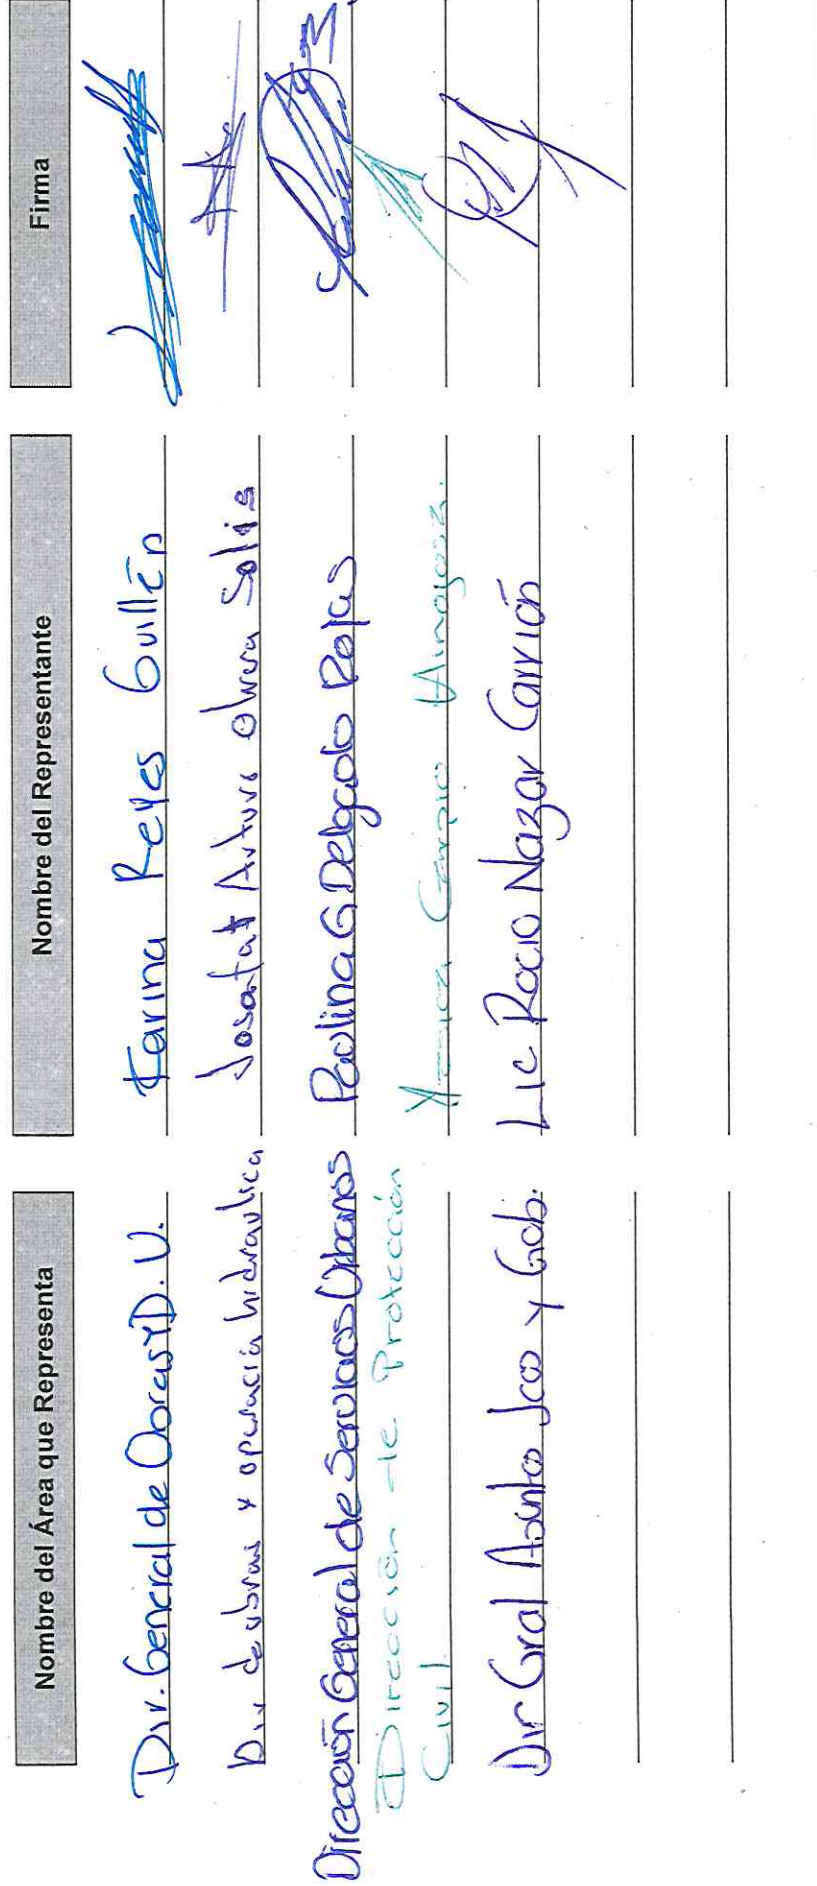 Nombre del Área que Representa
Nombre del Representante
Firma
Dir. General de Obras y D. U.
Karina Reyes Guillén
Dir de obras y operación hidraulica
Josafat Arturo Olvera Solis
Dirección General de Servicios Urbanos
Paolina G Delgado Rojas
Dirección de Protección
Civil.
Hinojosa.
Dir Gral Asunto Jcos y Gob.
Lic Rocio Nazar Carrión